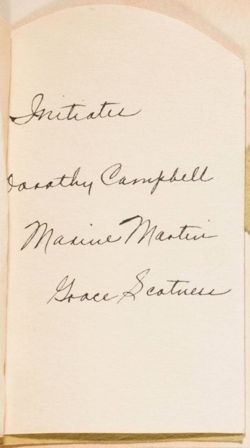 Initiates
Dorothy Campbell
Maxine Martin
Grace Scotvess